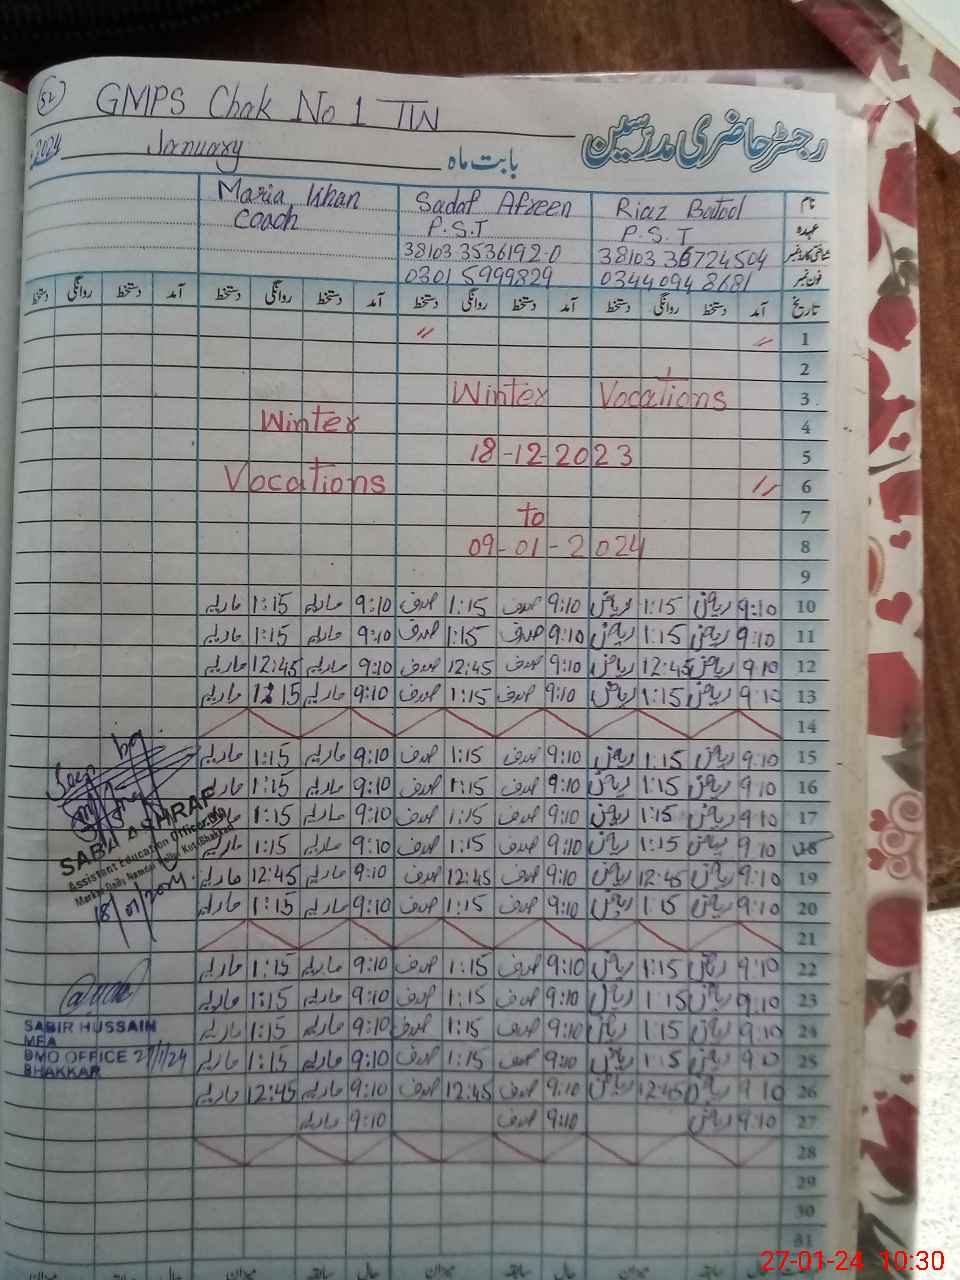 52 GMPS Chak No 1 TW
رجسٹر حاضری مدرسین
2024 January بابت ماہ
نام Riaz Batool Sadaf Afreen Maria Khan
عہدہ P.S.T P.S.T Coach
شناختی کارڈ نمبر 38103 36724504 38103 3536192-0
فون نمبر 0344094 8681 0301 5999829
تاریخ آمد دستخط روانگی دستخط آمد دستخط روانگی دستخط آمد دستخط روانگی دستخط آمد دستخط روانگی دستخط
1 〃 〃
2
3 Winter Vocations
4 Winter
5 18-12-2023
6 Vocations 〃
7 to
8 09-01-2024
9
10 9:10 ریاض 1:15 ریاض 9:10 صدف 1:15 صدف 9:10 ماریہ 1:15 ماریہ
11 9:10 ریاض 1:15 ریاض 9:10 صدف 1:15 صدف 9:10 ماریہ 1:15 ماریہ
12 9:10 ریاض 12:45 ریاض 9:10 صدف 12:45 صدف 9:10 ماریہ 12:45 ماریہ
13 9:10 ریاض 1:15 ریاض 9:10 صدف 1:15 صدف 9:10 ماریہ 1:15 ماریہ
14
15 9:10 ریاض 1:15 ریاض 9:10 صدف 1:15 صدف 9:10 ماریہ 1:15 ماریہ
16 9:10 ریاض 1:15 ریاض 9:10 صدف 1:15 صدف 9:10 ماریہ 1:15 ماریہ
17 9:10 ریاض 1:15 ریاض 9:10 صدف 1:15 صدف 9:10 ماریہ 1:15 ماریہ
18 9:10 ریاض 1:15 ریاض 9:10 صدف 1:15 صدف 9:10 ماریہ 1:15 ماریہ
19 9:10 ریاض 12:45 ریاض 9:10 صدف 12:45 صدف 9:10 ماریہ 12:45 ماریہ
20 9:10 ریاض 1:15 ریاض 9:10 صدف 1:15 صدف 9:10 ماریہ 1:15 ماریہ
21
22 9:10 ریاض 1:15 ریاض 9:10 صدف 1:15 صدف 9:10 ماریہ 1:15 ماریہ
23 9:10 ریاض 1:15 ریاض 9:10 صدف 1:15 صدف 9:10 ماریہ 1:15 ماریہ
24 9:10 ریاض 1:15 ریاض 9:10 صدف 1:15 صدف 9:10 ماریہ 1:15 ماریہ
25 9:10 ریاض 1:15 ریاض 9:10 صدف 1:15 صدف 9:10 ماریہ 1:15 ماریہ
26 9:10 ریاض 12:45 ریاض 9:10 صدف 12:45 صدف 9:10 ماریہ 12:45 ماریہ
27 9:10 ریاض 9:10 صدف 9:10 ماریہ
28
29
30
31
Seen by
SABA ASHRAF
Assistant Education Officer
18/01/2024
SABIR HUSSAIN
MEA
DMO OFFICE 27/1/24
BHAKKAR
27-01-24 10:30